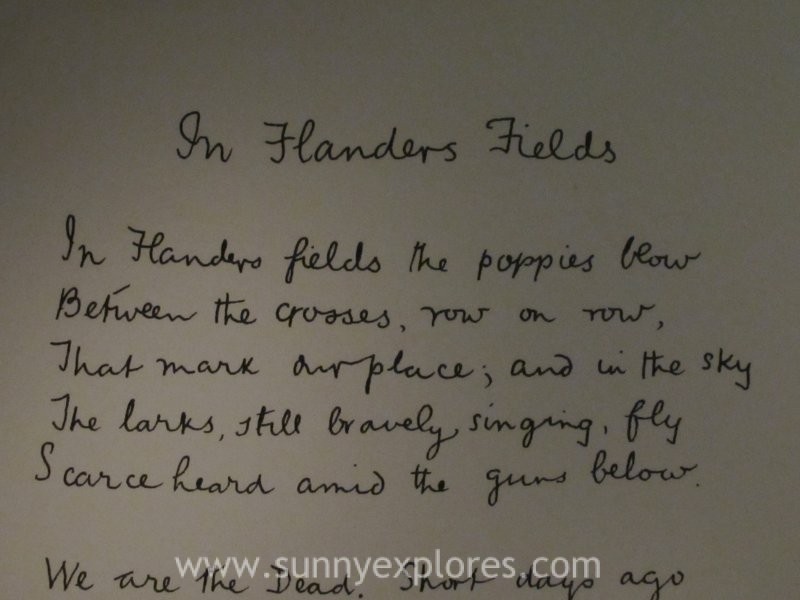 In Flanders Fields
In Flanders fields the poppies blow
Between the crosses, row on row,
That mark our place; and in the sky
The larks, still bravely singing, fly
Scarce heard amid the guns below.
We are the Dead. Short days ago
www.sunnyexplores.com